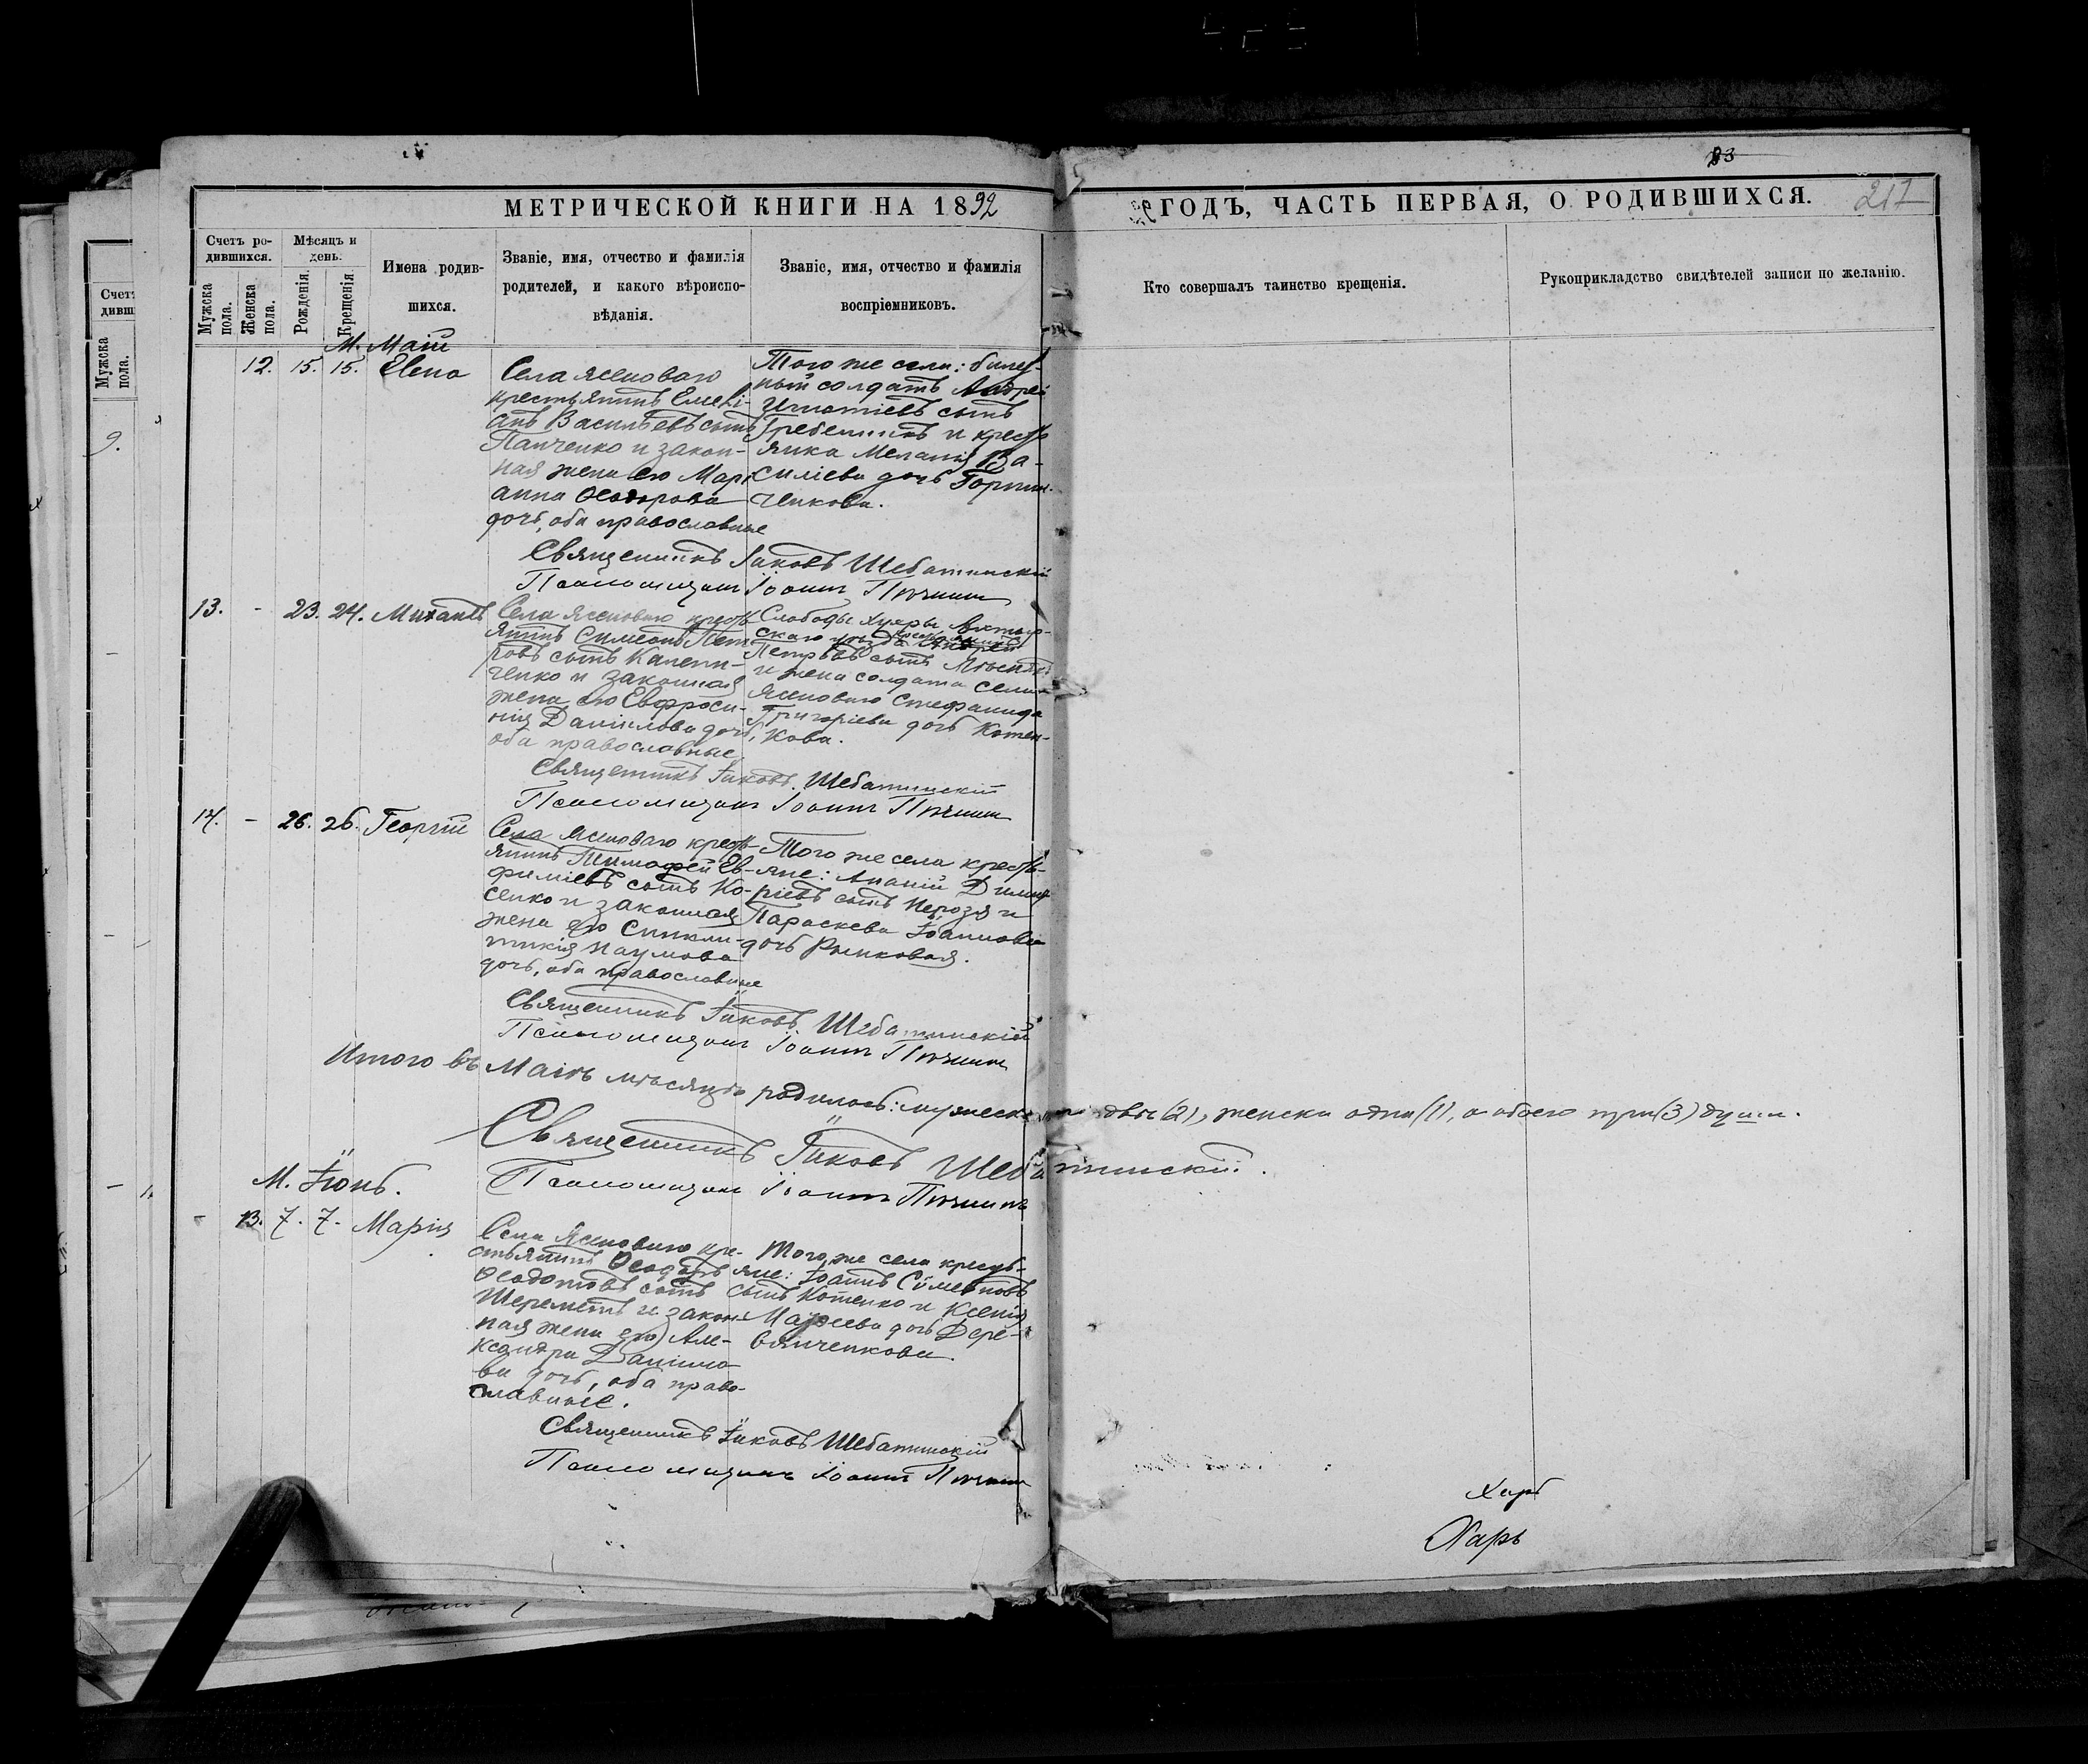 83
МЕТРИЧЕСКОЙ КНИГИ НА 1892
ГОДЪ, ЧАСТЬ ПЕРВАЯ, О РОДИВШИХСЯ.
217
Счетъ ро-
дившихся.
Мужска
пола.
Женска
пола.
Мѣсяцъ и
день.
Рожденія.
Крещенія.
Имена родив-
шихся.
Званіе, имя, отчество и фамилія
родителей, и какого вѣроиспо-
вѣданія.
Званіе, имя, отчество и фамилія
воспріемниковъ.
Кто совершалъ таинство крещенія.
Рукоприкладство свидѣтелей записи по желанію.
М. Маій
12. 15. 15. Елена
Села Ясеноваго
крестьянинъ Емелі-
анъ Васильевъ сынъ
Панченко и закон-
ная жена его Марі
анна Ѳеодорова
дочь, оба православные
Того же села: билет
ный солдатъ Андрей
Игнатіевъ сынъ
Гребенникъ и кресть
янка Меланія Ва-
силіева дочь
ченкова.
Священникъ Іаковъ Шебатинскій
Псаломщикъ Іоаннъ
13. - 23. 24. Михаилъ
Села Ясеноваго кресть
янинъ Симеонъ Пет
ровъ сынъ
ченко и законная
жена его Евфроси-
нія Даніилова дочь,
оба православные
Слободы Ахтыр-
скаго уѣзда
Петровъ сынъ
и жена солдата села
Ясеноваго Стефанида
Григоріева дочь Котен-
кова.
Священникъ Іаковъ Шебатинскій
Псаломщикъ Іоаннъ
14. - 26. 26. Георгій
Села Ясеноваго кресть-
янинъ Тимофей Ев-
фиміевъ сынъ Ко-
сенко и законная
жена его Синкли-
тикія Наумова
дочь, оба православные
Того же села кресть-
яне: Ананій Димит
ріевъ сынъ и
Параскева Іоаннова
дочь Рынковая.
Священникъ Іаковъ Шебатинскій
Псаломщикъ Іоаннъ
Итого въ Маіѣ мѣсяцѣ родилось: мужеска двѣ (2), женска одна (1), а обоего три (3) души.
Священникъ Іаковъ Шебатинскій.
Псаломщикъ Іоаннъ
М. Іюнь.
- 13. 7. 7. Марія
Села Ясеноваго кре-
стьянинъ Ѳеодоръ
Ѳеодотовъ сынъ
Шереметъ и закон
ная жена его Але-
ксандра Даніило
ва дочь, оба право-
славные.
Того же села кресть-
яне: Іоаннъ Симеоновъ
сынъ Котенко и Ксенія
дочь Дере-
вянченкова.
Священникъ Іаковъ Шебатинскій
Псаломщикъ Іоаннъ
Харь
Харь